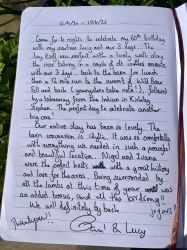 Came for 4 nights to celebrate my 60th birthday
with my partner Lucy and our 3 dogs. The
day itself was perfect with a lovely walk along
the river before a couple of
with our 3 dogs, back to the barn for lunch
then a 12 mile run to the summit of Wild Boar
Fell and back (
by a takeaway from the Indian in Kirkby
Stephen. The perfect day to celebrate another
big one.
Our entire stay has been so lovely. The
barn conversion is It was so comfortable
with everything we needed in such a peaceful
and beautiful location. Nigel and
were the perfect hosts with a great history
and love for the area. Being surrounded
all the lambs at this time of year was
an added bonus, and all the birdsong!
We will definitely be back
Thankyou!
Paul & Lucy